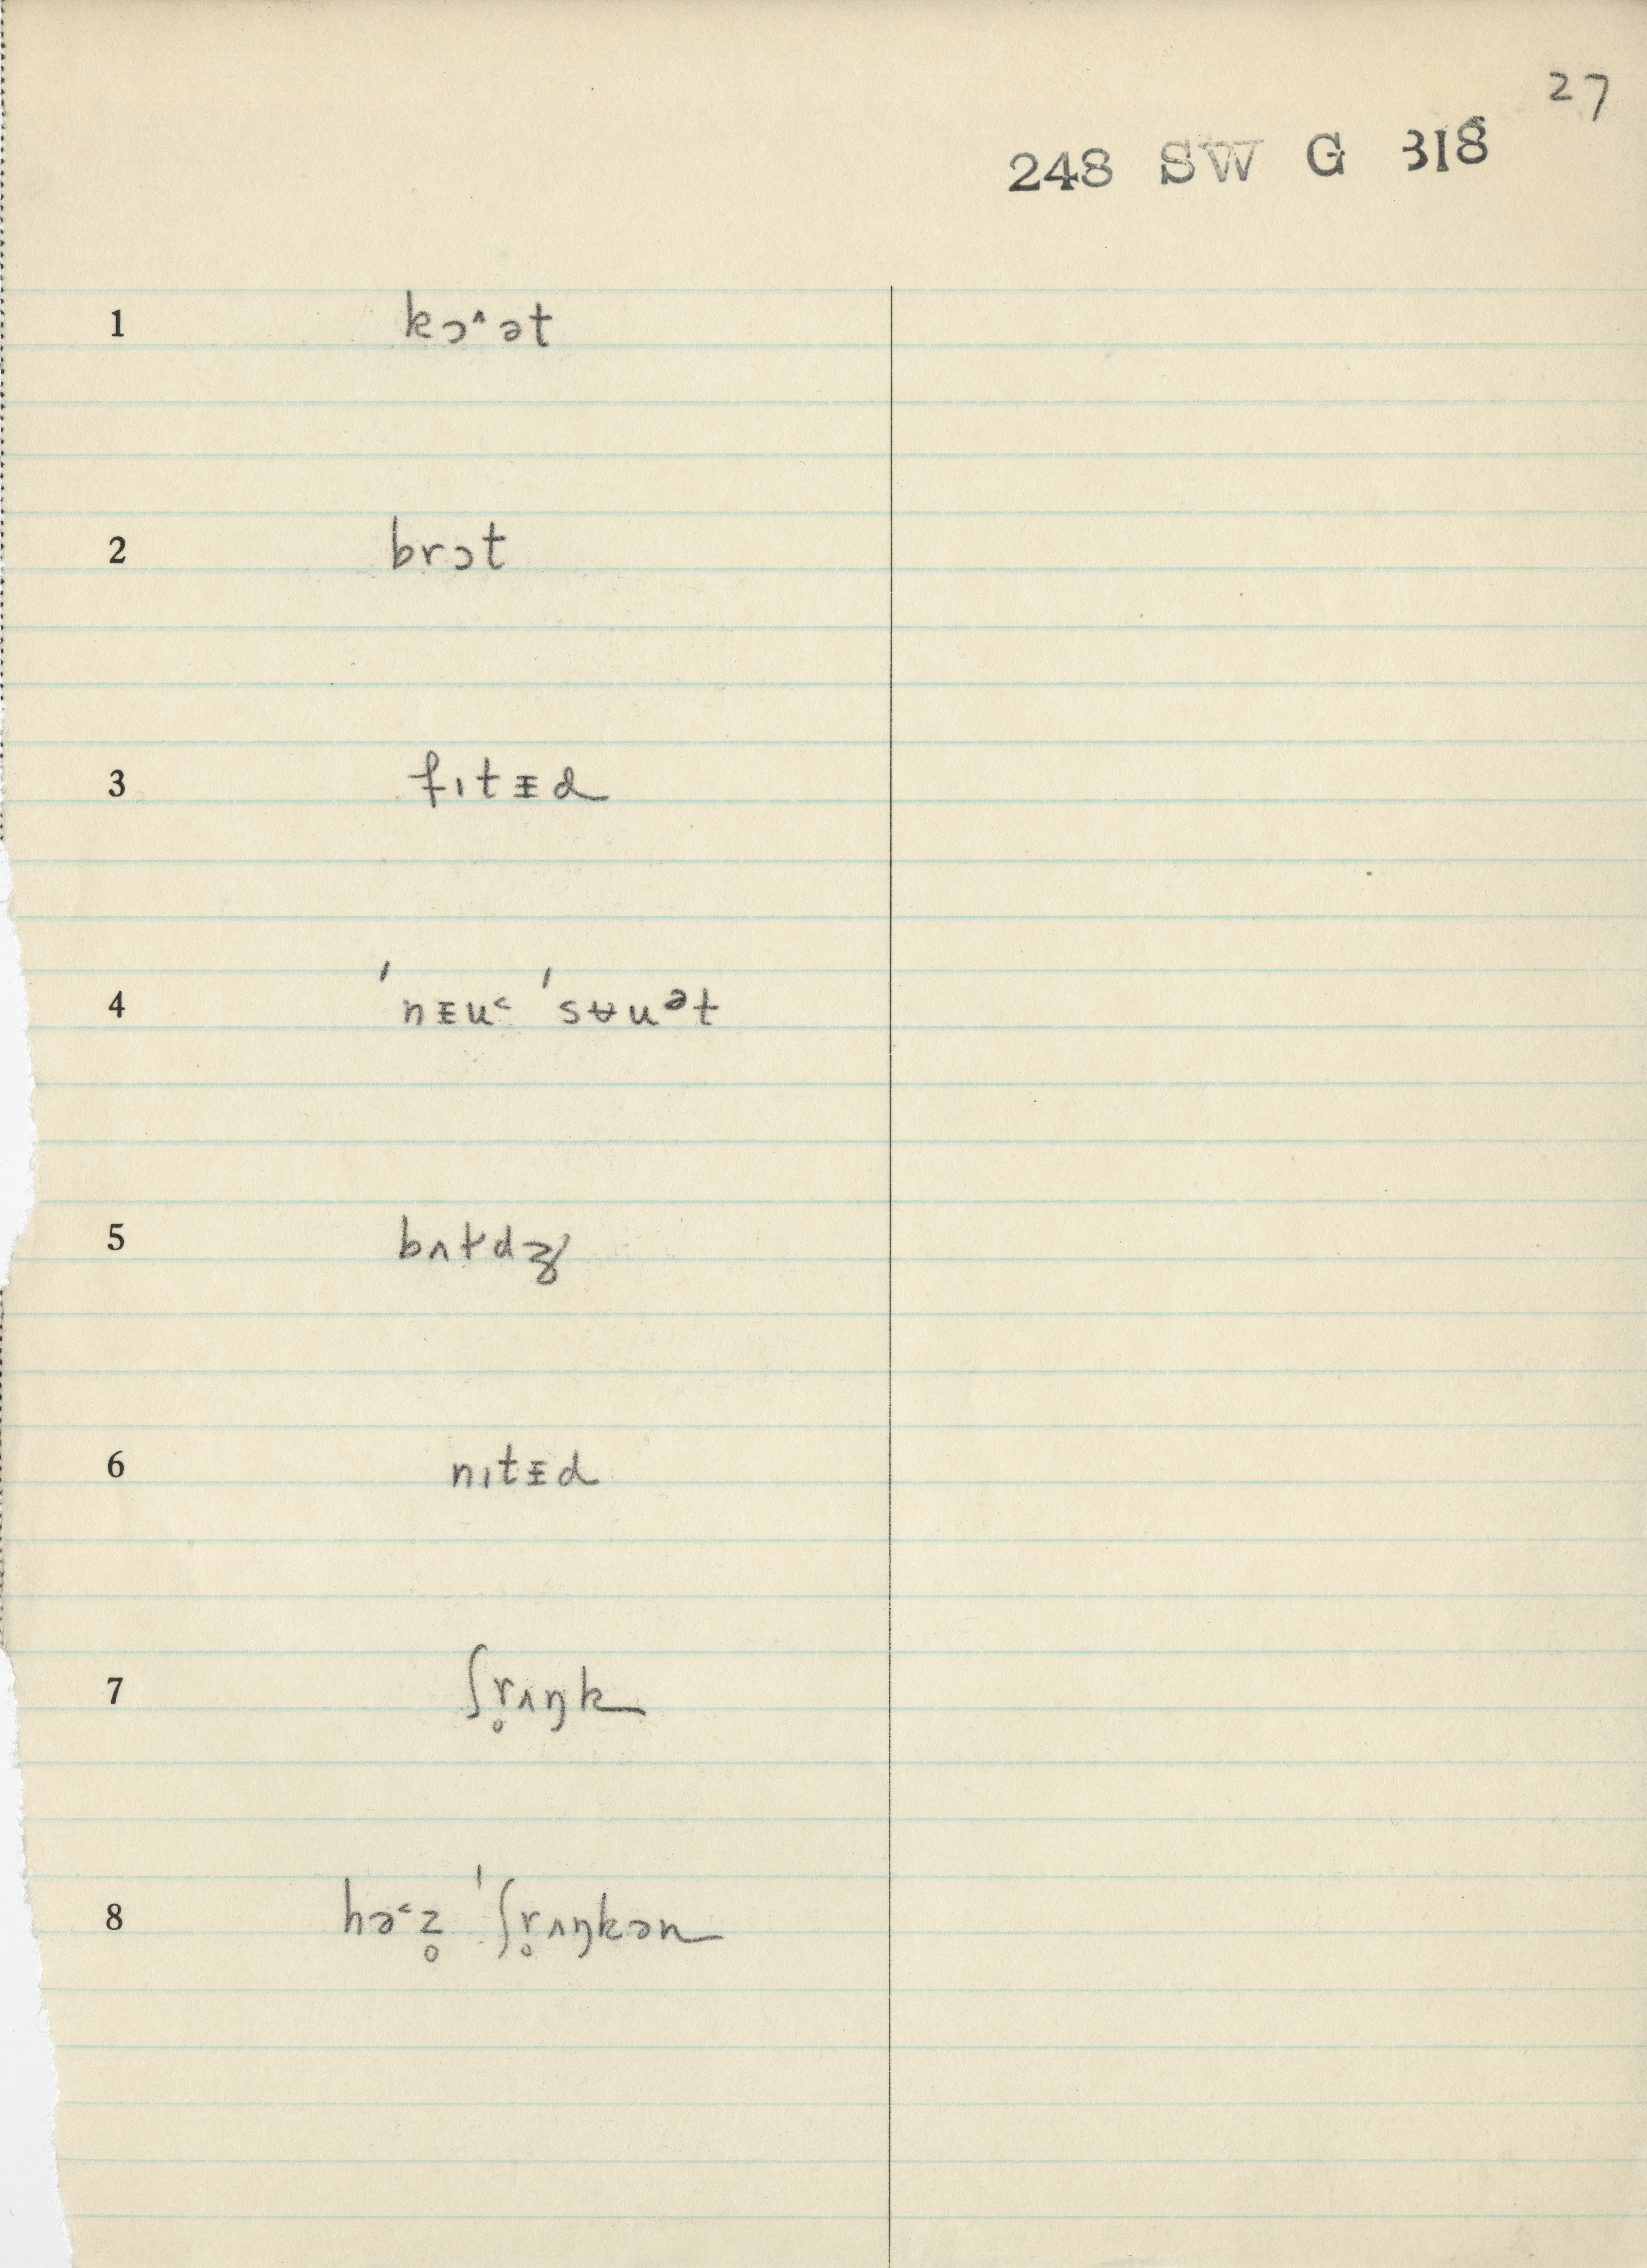 27
248 SW G 318
1 kɔ^ət
2 brɔt
3 fɪtᵻd
4 ˈnᵻu˂ ˈsʉuᵊt
5 bʌɫdʒ
6 nɪtᵻd
7 ʃr̥ʌŋk
8 hə˂z̥ ˈʃr̥ʌŋkən